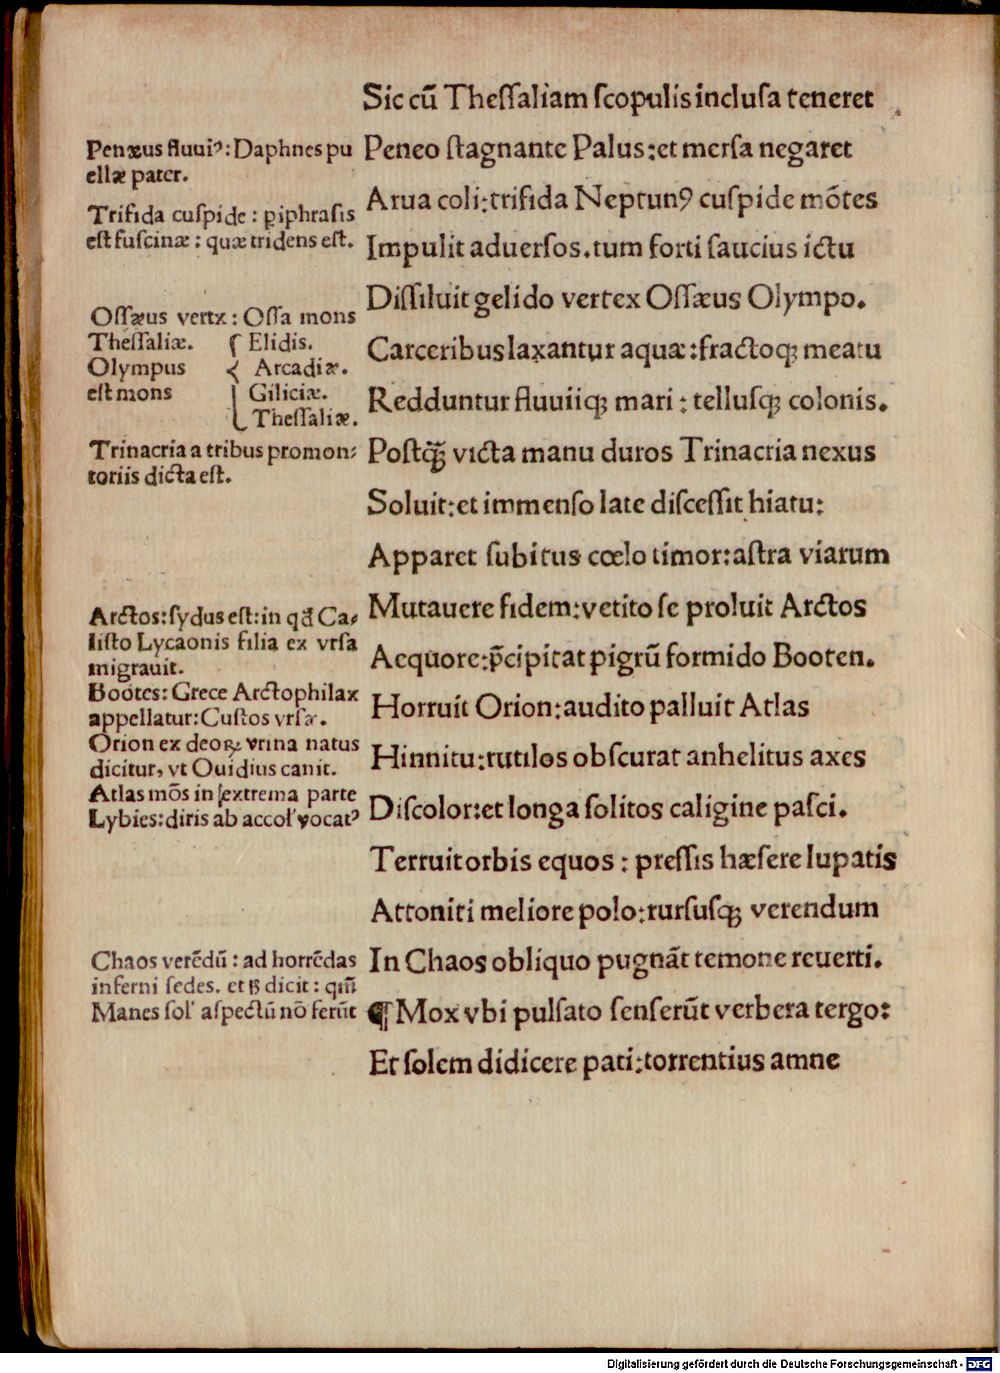 Sic cū Theſſaliam ſcopulis incluſa teneret
Peneo ſtagnante Palus:et merſa negaret
Arua coli:trifida Neptunꝰ cuſpide mōtes
Impulit aduerſos.tum forti ſaucius ictu
Diſſiluit gelido vertex Oſſæus Olympo.
Carceribus laxantur aquæ:fractoqꝫ meatu
Redduntur fluuiiqꝫ mari : tellusqꝫ colonis.
Poſtqꝫ̄ victa manu duros Trinacria nexus
Soluit:et immenſo late diſceſſit hiatu:
Apparet ſubitus cœlo timor:aſtra viarum
Mutauere fidem:vetito ſe proluit Arctos
Aequore:p̄cipitat pigrū formido Booten.
Horruit Orion:audito palluit Atlas
Hinnitu:rutilos obſcurat anhelitus axes
Diſcolor:et longa ſolitos caligine paſci.
Terruit orbis equos : preſſis hæſere lupatis
Attoniti meliore polo:rurſuſqꝫ verendum
In Chaos obliquo pugnāt temone reuerti.
¶ Mox vbi pulſato ſenſerūt verbera tergo:
Et ſolem didicere pati:torrentius amne
Penæus fluuiꝰ:Daphnes pu
ellæ pater.
Trifida cuſpide : ꝑiphraſis
eſt fuſcinæ : quæ tridens eſt.
Oſſæus vertx : Oſſa mons
Theſſaliæ. { Elidis.
Olympus Arcadiæ.
eſt mons Giliciæ.
Theſſaliæ.
Trinacria a tribus promon⸗
toriis dicta eſt.
Arctos:ſydus eſt:in qđ Ca⸗
liſto Lycaonis filia ex vrſa
migrauit.
Bootes:Grece Arctophilax
appellatur:Cuſtos vrſæ.
Orion ex deoꝝ vrina natus
dicitur, vt Ouidius canit.
Atlas mōs in extrema parte
Lybies:diris ab accol' vocatꝰ
Chaos verēdū : ad horrēdas
inferni ſedes. et ꝧ dicit : qm̄
Manes ſol' aſpectū nō ferūt
Digitalisierung gefördert durch die Deutsche Forschungsgemeinschaft - DFG